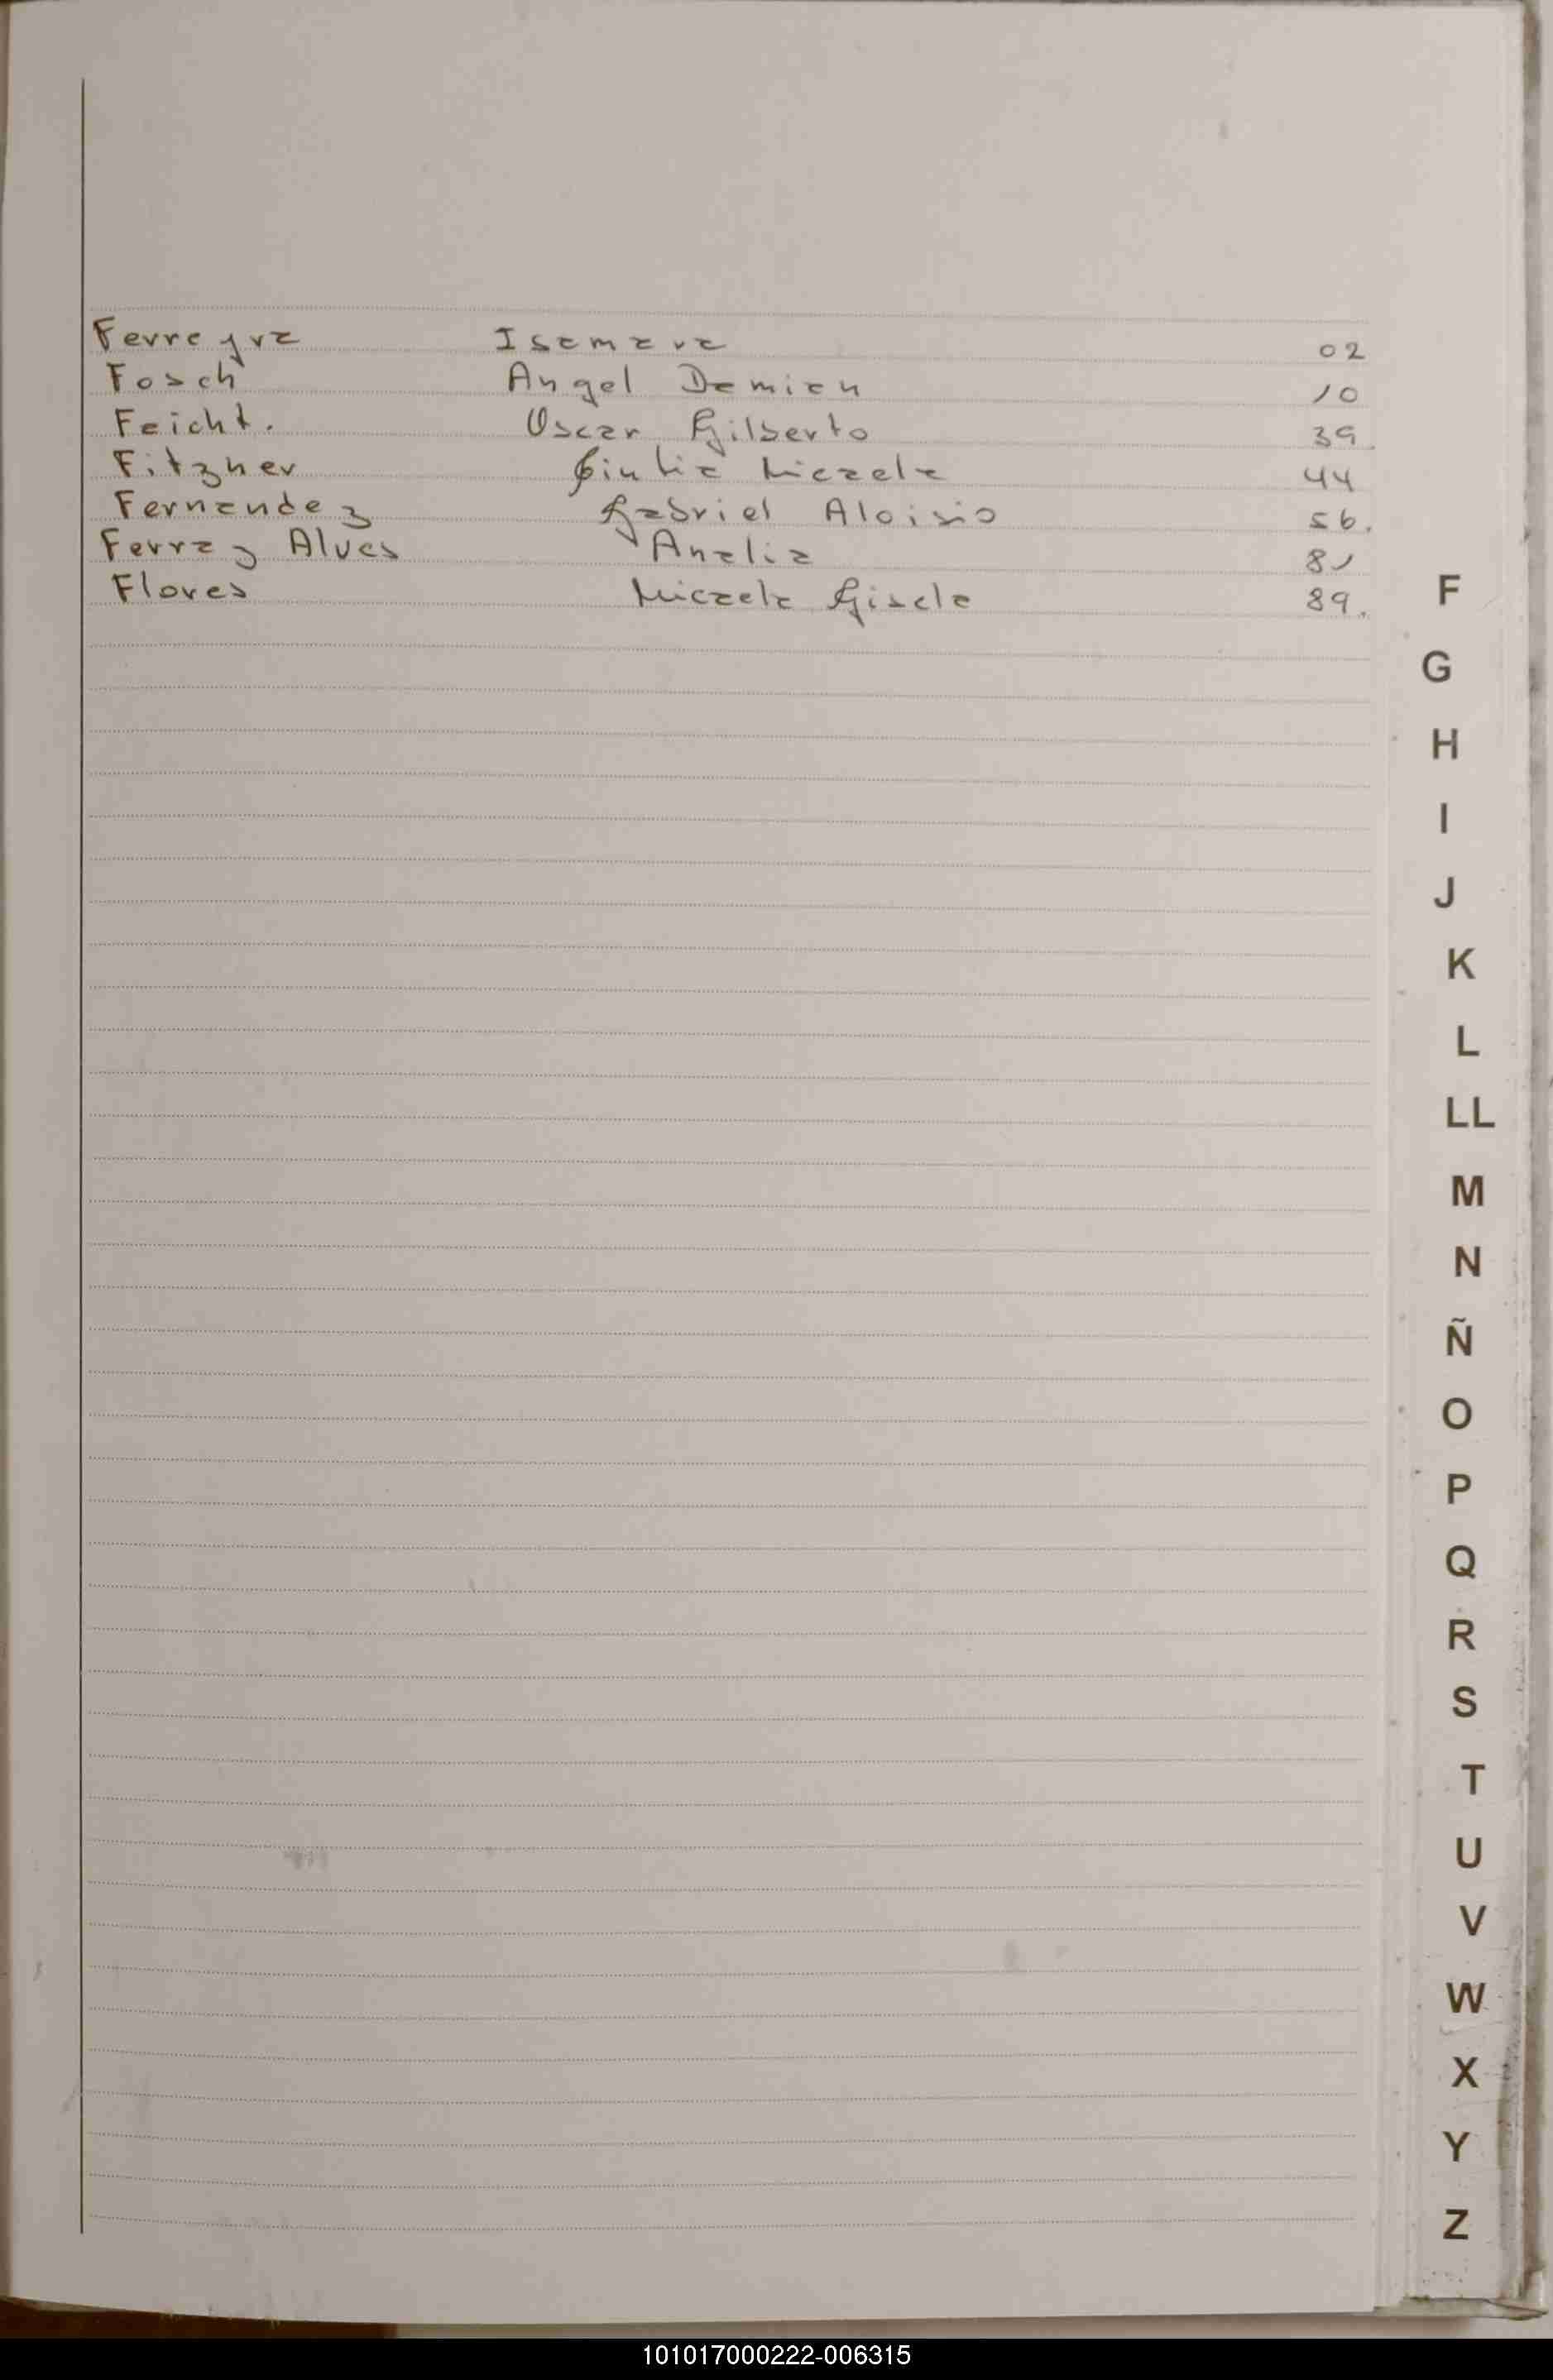 Ferreyra Isamara 02
Fosch Angel Damian 10
Feicht. Oscar Gilberto 39
Fitzner Cintia Micaela 44
Fernandez Gabriel Aloisio 56.
Ferraz Alves Analia 81
Flores Micaela Gisela 89.
F
G
H
I
J
K
L
LL
M
N
Ñ
O
P
Q
R
S
T
U
V
W
X
Y
Z
101017000222-006315